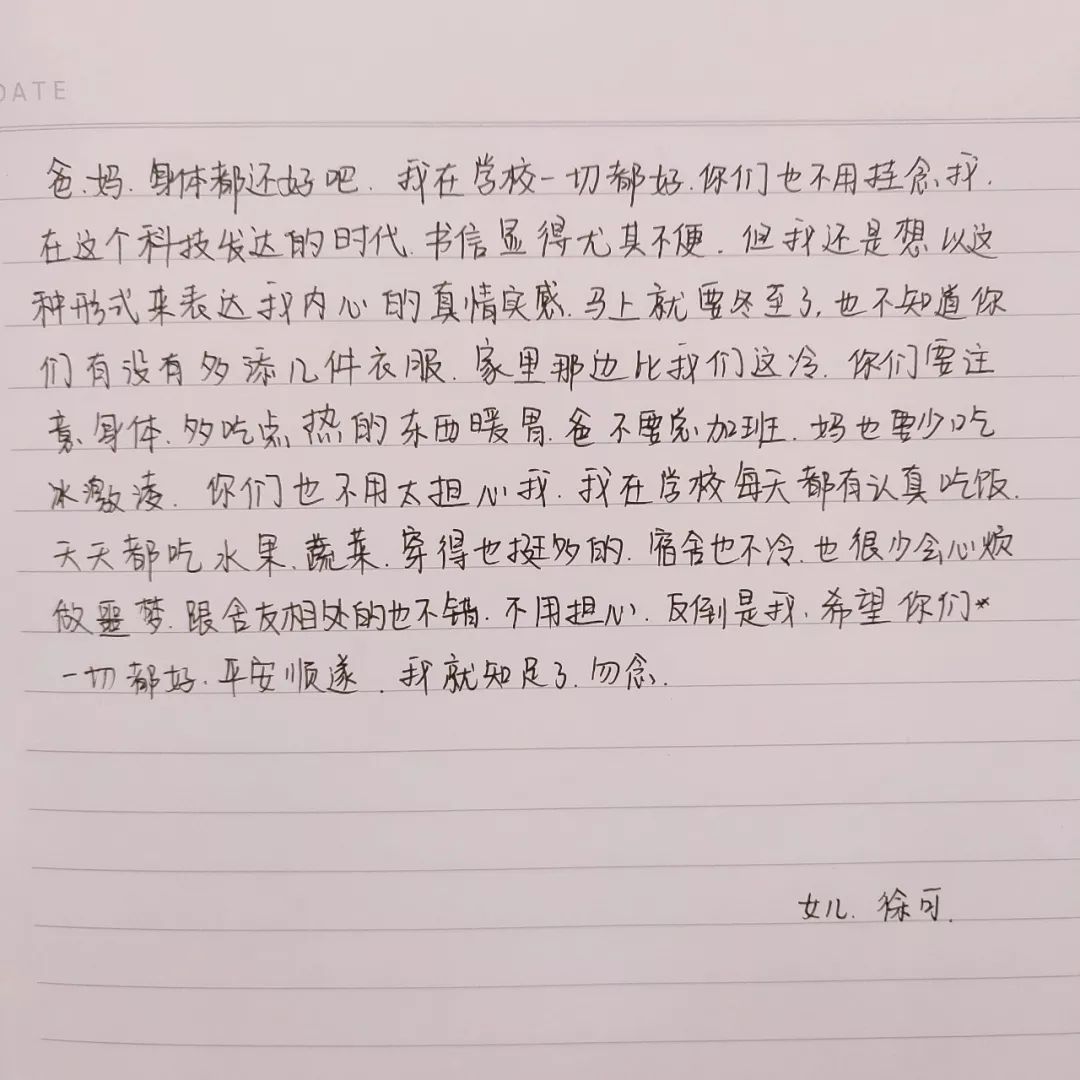 DATE
爸.妈.身体都还好吧.我在学校一切都好.你们也不用挂念我.
在这个科技发达的时代.书信显得尤其不便.但我还是想以这
种形式来表达我内心的真情实感.马上就要冬至了,也不知道你
们有没有多添几件衣服.家里那边比我们这冷.你们要注
意身体.多吃点热的东西暖胃.爸不要总加班.妈也要少吃
冰激凌.你们也不用太担心我.我在学校每天都有认真吃饭.
天天都吃水果.蔬菜.穿得也挺多的.宿舍也不冷.也很少会心烦
做噩梦.跟舍友相处的也不错.不用担心.反倒是我.希望你们*
一切都好.平安顺遂.我就知足了.勿念.
女儿.徐可.